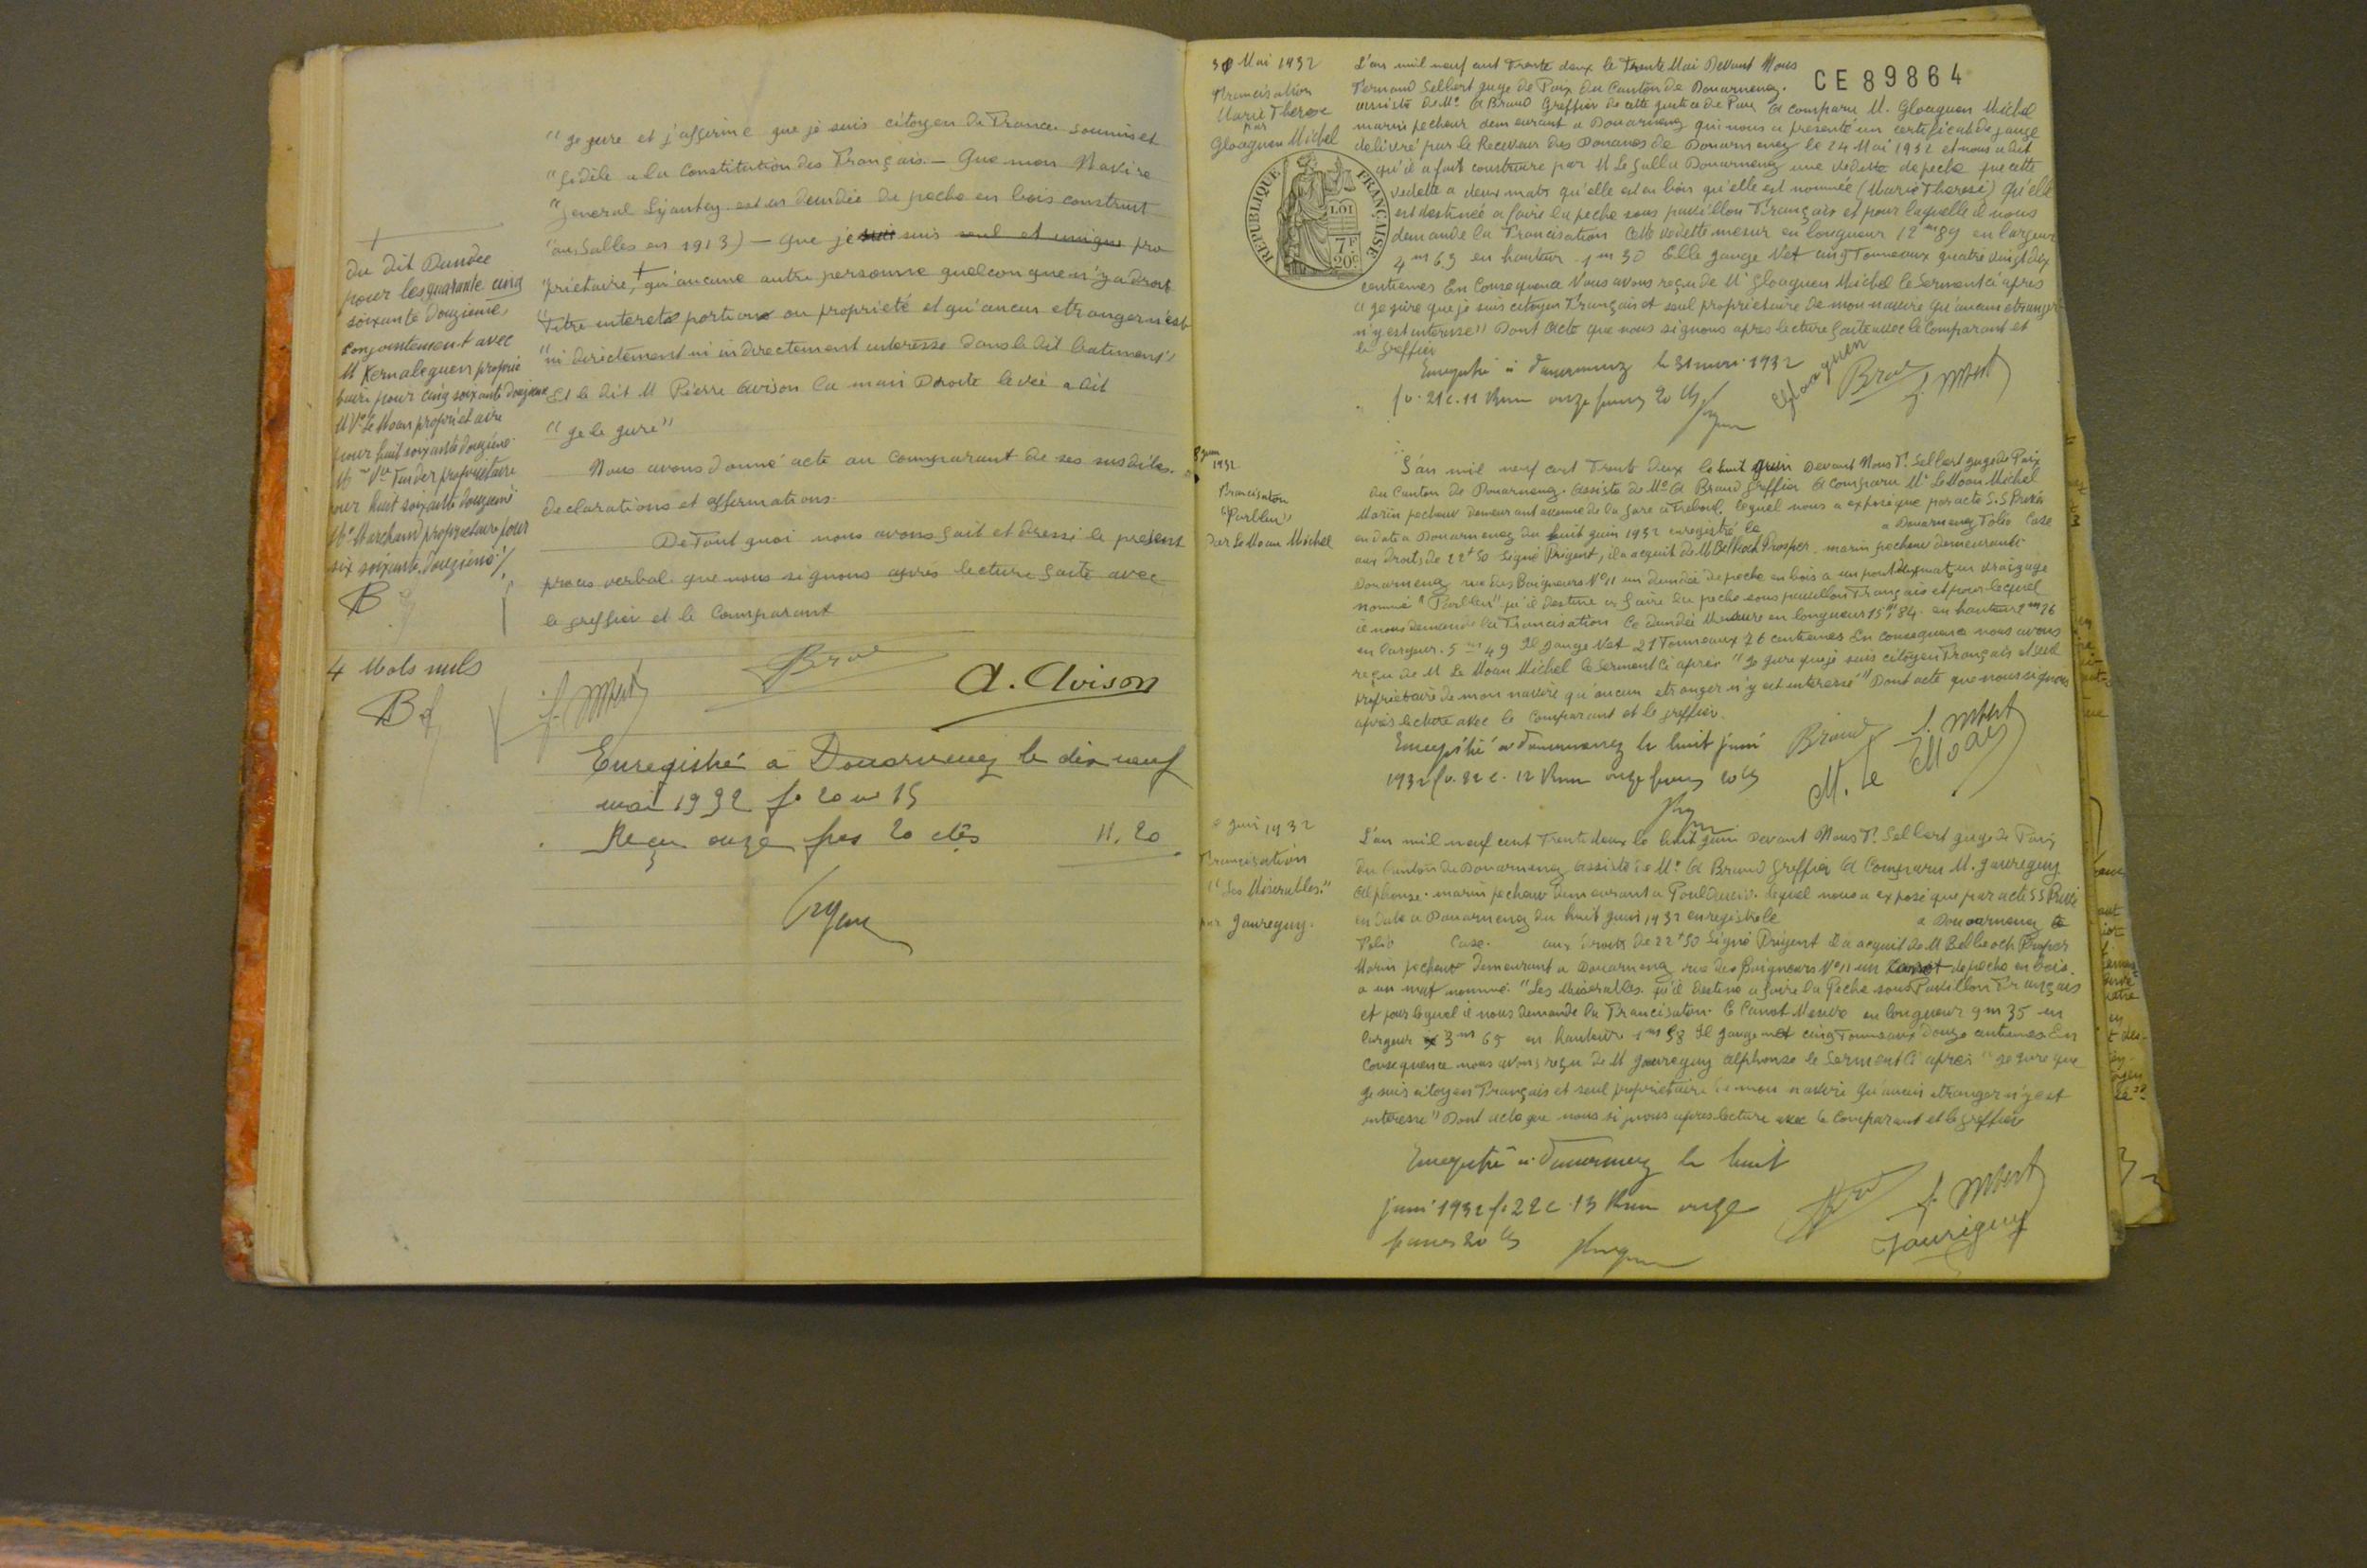 "Je jure et j'affirme que je suis citoyen de France soumis et
"fidèle a la Constitution des Français. — Que mon Navire
"General Lyautey est un dundee de peche en bois construit
"aux Salles en 1913) — que je suis suis seul et unique pro
"prietaire, + qu'aucune autre personne quelconque n'y a droit
"titre interets portions ou propriété et qu'aucun etranger n'est
"ni directement ni indirectement interessé dans le dit batiment"
Et le dit M Pierre Avison la main Droite levée a dit
"Je le jure"
Nous avons donné acte au comparant de ses susdites.
declarations et affirmations.
De Tout quoi nous avons fait et dressé le present
proces verbal que nous signons après lecture faite avec
le greffier et le Comparant
+
du dit Dundee
pour les quarante cinq
soixante douzièmes
conjointement avec
M Kernaleguen proprie
taire pour cinq soixante douzième
M Vve Le Moan propriétaire
pour huit soixante douzième
Mme Vve Tander propriétaire
pour huit soixante douzième
Mr Marchand proprietaire pour
six soixante douzième /.
B
4 Mots nuls
B
A. Avison
Enregistré à Douarnenez le dix neuf
mai 1932 fo 20 no 15
Reçu onze frs 20 cts 11,20
30 Mai 1932
Francisation
Marie Therese
par
Gloaguen Michel
CE 89864
REPUBLIQUE FRANÇAISE
LOI
7F
20c
L'an mil neuf cent Trente deux le Trente Mai Devant Nous
Fernand Sellert juge de Paix du Canton de Douarnenez.
assisté de Me A Braud Greffier de cette Justice de Paix A comparu M. Gloaguen Michel
marin pecheur demeurant a Douarnenez qui nous a presenté un certificat de jauge
delivré par le Receveur des Douanes de Douarnenez le 24 Mai 1932 et nous a dit
qu'il a fait construire par M Le Gall a Douarnenez une vedette de peche que cette
vedette a deux mats qu'elle est en bois qu'elle est nommée (Marie Therese) Qu'elle
est destinée a faire la peche sous pavillon Français et pour laquelle il nous
demande la Francisation Cette vedette mesure en longueur 12 m 89 en largeur
4 m 69 en hauteur 1 m 30 Elle jauge Net cinq Tonneaux quatre vingt dix
centiemes En Consequence Nous avons reçu de Mr Gloaguen Michel le Serment ci apres
"Je jure que je suis citoyen Français et seul proprietaire de mon navire qu'aucun etranger
n'y est interessé" Dont Acte que nous signons apres lecture faite avec le Comparant et
le Greffier
Enregistré à Douarnenez le 31 mai 1932
fo. 21 c. 11 Reçu onze francs 20 cts
Gloaguen
8 juin
1932
Francisation
"Parlleur"
par Le Moan Michel
L'an mil neuf cent Trente deux le huit Juin Devant Nous F. Sellert juge de Paix
du Canton de Douarnenez. Assisté de Me A Braud Greffier A Comparu Mr Le Moan Michel
Marin pecheur demeurant avenue de la Gare a Treboul, lequel nous a exposé que par acte S.S Privés
en date a Douarnenez du huit juin 1932 enregistré le a Douarnenez Folio Case
aux droits de 22f50 Signé Prigent, il a acquit de M Belbeoch Prosper marin pecheur demeurant
Douarnenez rue des Baigneurs No 11 un dundee de peche en bois a un pont
nommé "Parlleur" qu'il destine a faire la peche sous pavillon Français et pour lequel
il nous demande la Francisation Ce dundee Mesure en longueur 15 m 84 en hauteur 2 m 26
en largeur. 5 m 49 Il jauge Net 21 Tonneaux 76 centiemes En consequence nous avons
reçu de M Le Moan Michel le Serment ci après "Je jure que je suis citoyen Français et seul
proprietaire de mon navire qu'aucun etranger n'y est interessé" Dont acte que nous signons
après lecture avec le Comparant et le greffier.
Enregistré a Douarnenez le huit juin
1932 fo. 22 c. 12 Reçu onze francs 20 cts
Braud
M. Le Moan
8 juin 1932
Francisation
"Les Miserables."
par Jaureguy.
L'an mil neuf cent Trente deux le huit Juin Devant Nous F. Sellert juge de Paix
du Canton de Douarnenez assisté de Me A Braud Greffier A Comparu M. Jaureguy
Alphonse. marin pecheur demeurant a Pouldavid. lequel nous a exposé que par acte SS Privé
en date a Douarnenez du huit juin 1932 enregistré le a Douarnenez le
Folio Case. aux droits de 22f50 Signé Prigent il a acquit de M Belbeoch Prosper
Marin pecheur demeurant a Douarnenez rue des Baigneurs No 11 un Canot de peche en bois.
a un mat nommé. "Les Miserables. qu'il destine a faire la Peche sous Pavillon Français
et pour lequel il nous demande la Francisation. Ce Canot Mesure en longueur 9 m 35 en
largeur 3 m 65 en hauteur 1 m 58 Il jauge net cinq Tonneaux douze centiemes En
Consequence nous avons reçu de M Jaureguy Alphonse le Serment Ci apres "Je jure que
je suis citoyen Français et seul proprietaire de mon navire Qu'aucun etranger n'y est
interesse" Dont acte que nous signons apres lecture avec le Comparant et le greffier
Enregistré à Douarnenez le huit
juin 1932 fo 22 c. 13 Reçu onze
francs 20 cts
Jaureguy